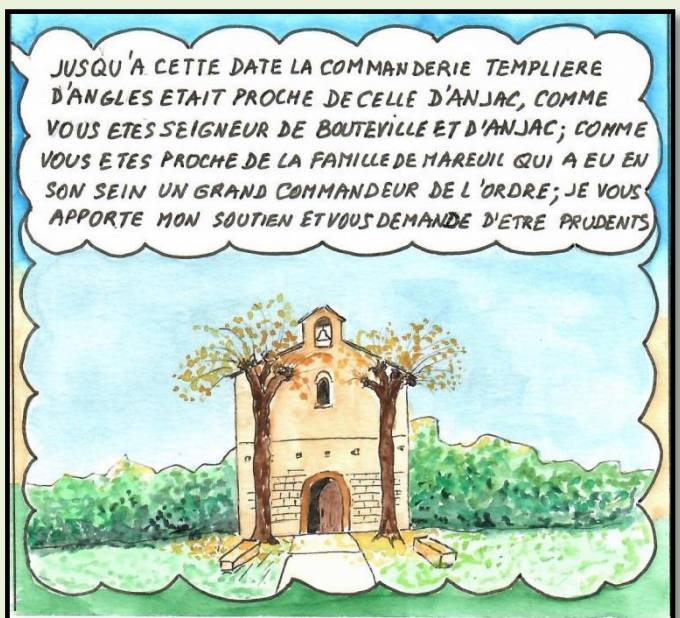 JUSQU'A CETTE DATE LA COMMANDERIE TEMPLIERE
D'ANGLES ETAIT PROCHE DE CELLE D'ANJAC, COMME
VOUS ETES SEIGNEUR DE BOUTEVILLE ET D'ANJAC; COMME
VOUS ETES PROCHE DE LA FAMILLE DE MAREUIL QUI A EU EN
SON SEIN UN GRAND COMMANDEUR DE L'ORDRE; JE VOUS
APPORTE MON SOUTIEN ET VOUS DEMANDE D'ETRE PRUDENTS